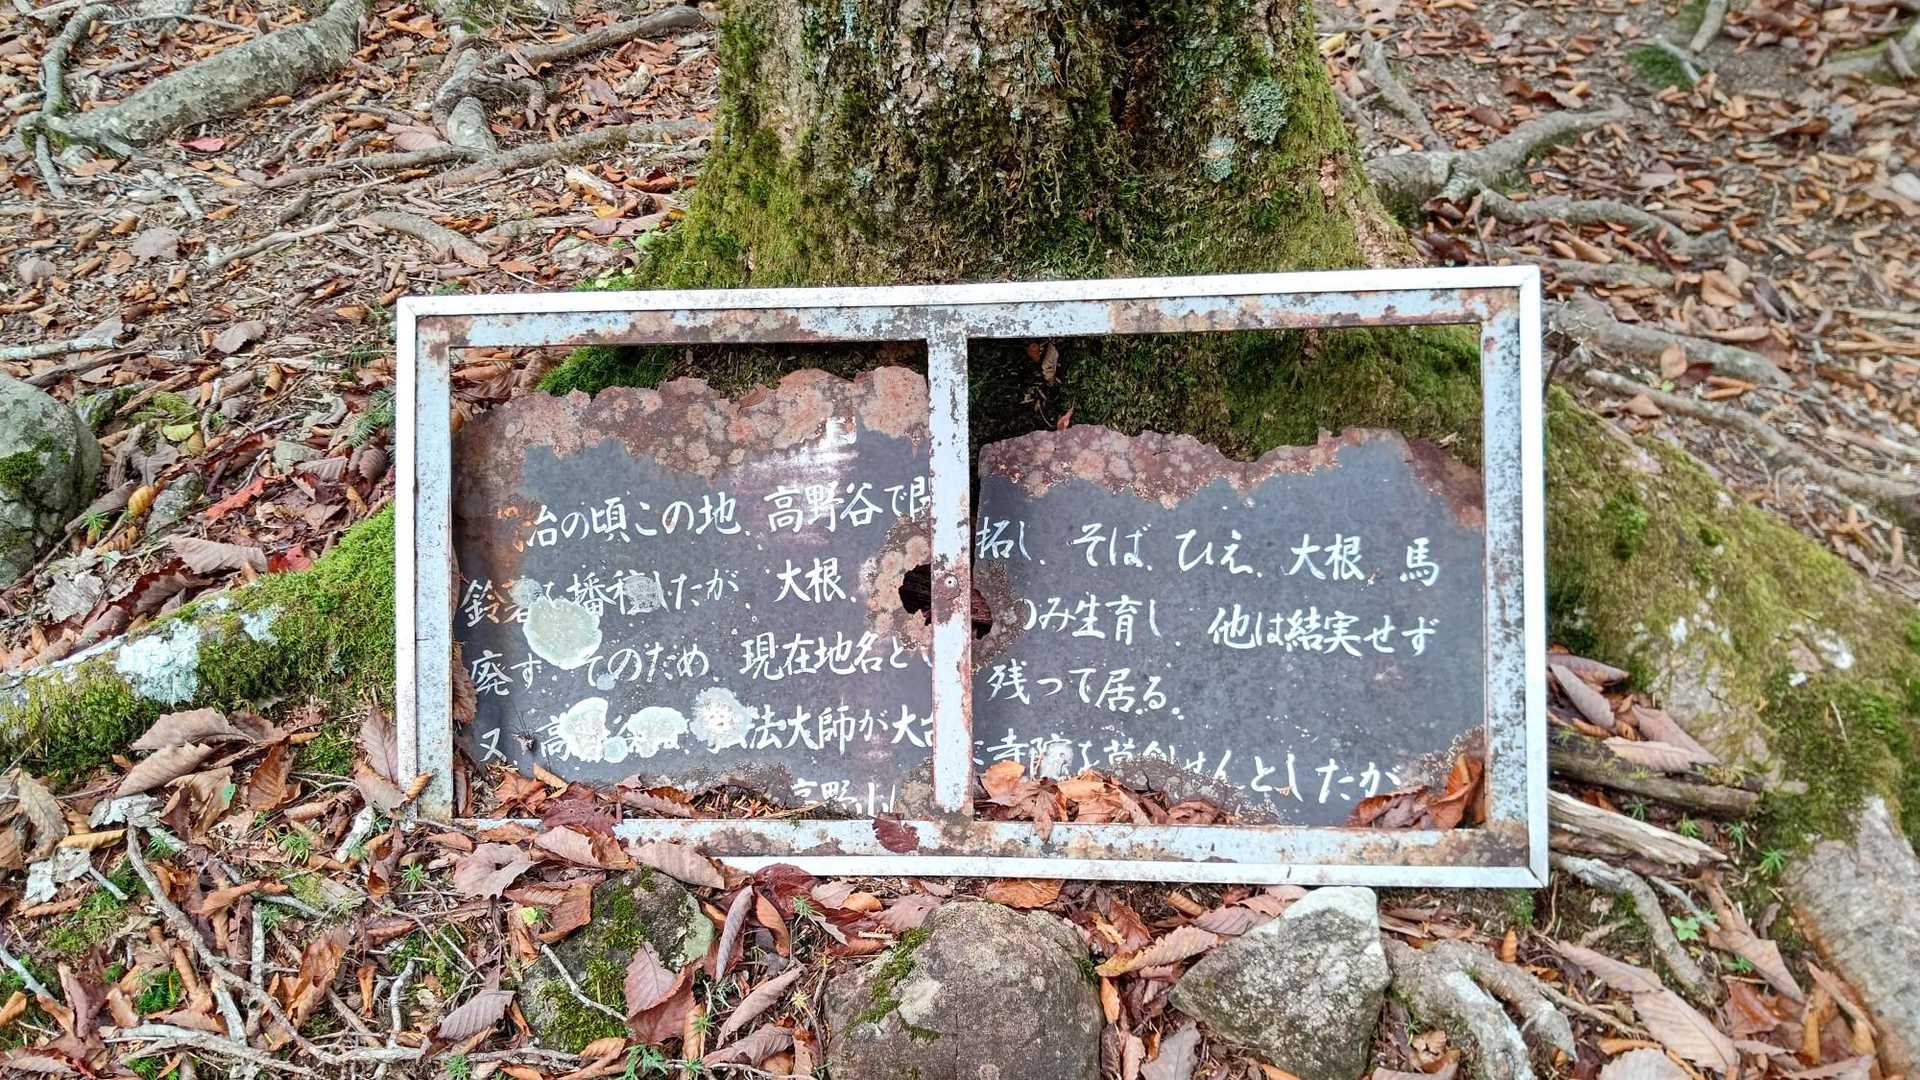 治の頃この地、高野谷で開拓し、そば、ひえ、大根、馬
鈴薯を播種したが、大根、のみ生育し、他は結実せず
廃す、そのため、現在地名として残って居る。
又、高野谷は、弘法大師が大台に寺院を草創せんとしたが
高野山